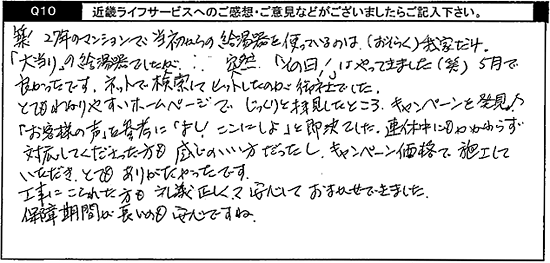 Q10 近畿ライフサービスへのご感想・ご意見などがございましたらご記入下さい。
築27年のマンションで当初からの給湯器を使っているのは、(おそらく)我家だけ。
「大当り」の給湯器でしたが、… 突然、「その日!」はやってきました(笑) 5月で
良かったです。ネットで検索してヒットしたのが御社でした。
とてもわかりやすいホームページで じっくりと拝見したところ、キャンペーンを発見!
「お客様の声」を参考に「よし!ここにしよ」と即決でした。連休中にもかかわらず
対応してくださった方も感じのいい方だったし、キャンペーン価格で施工して
いただき、とてもありがたかったです。
工事にこられた方も礼儀正しくて安心しておまかせできました。
保障期間が長いのも安心ですね。